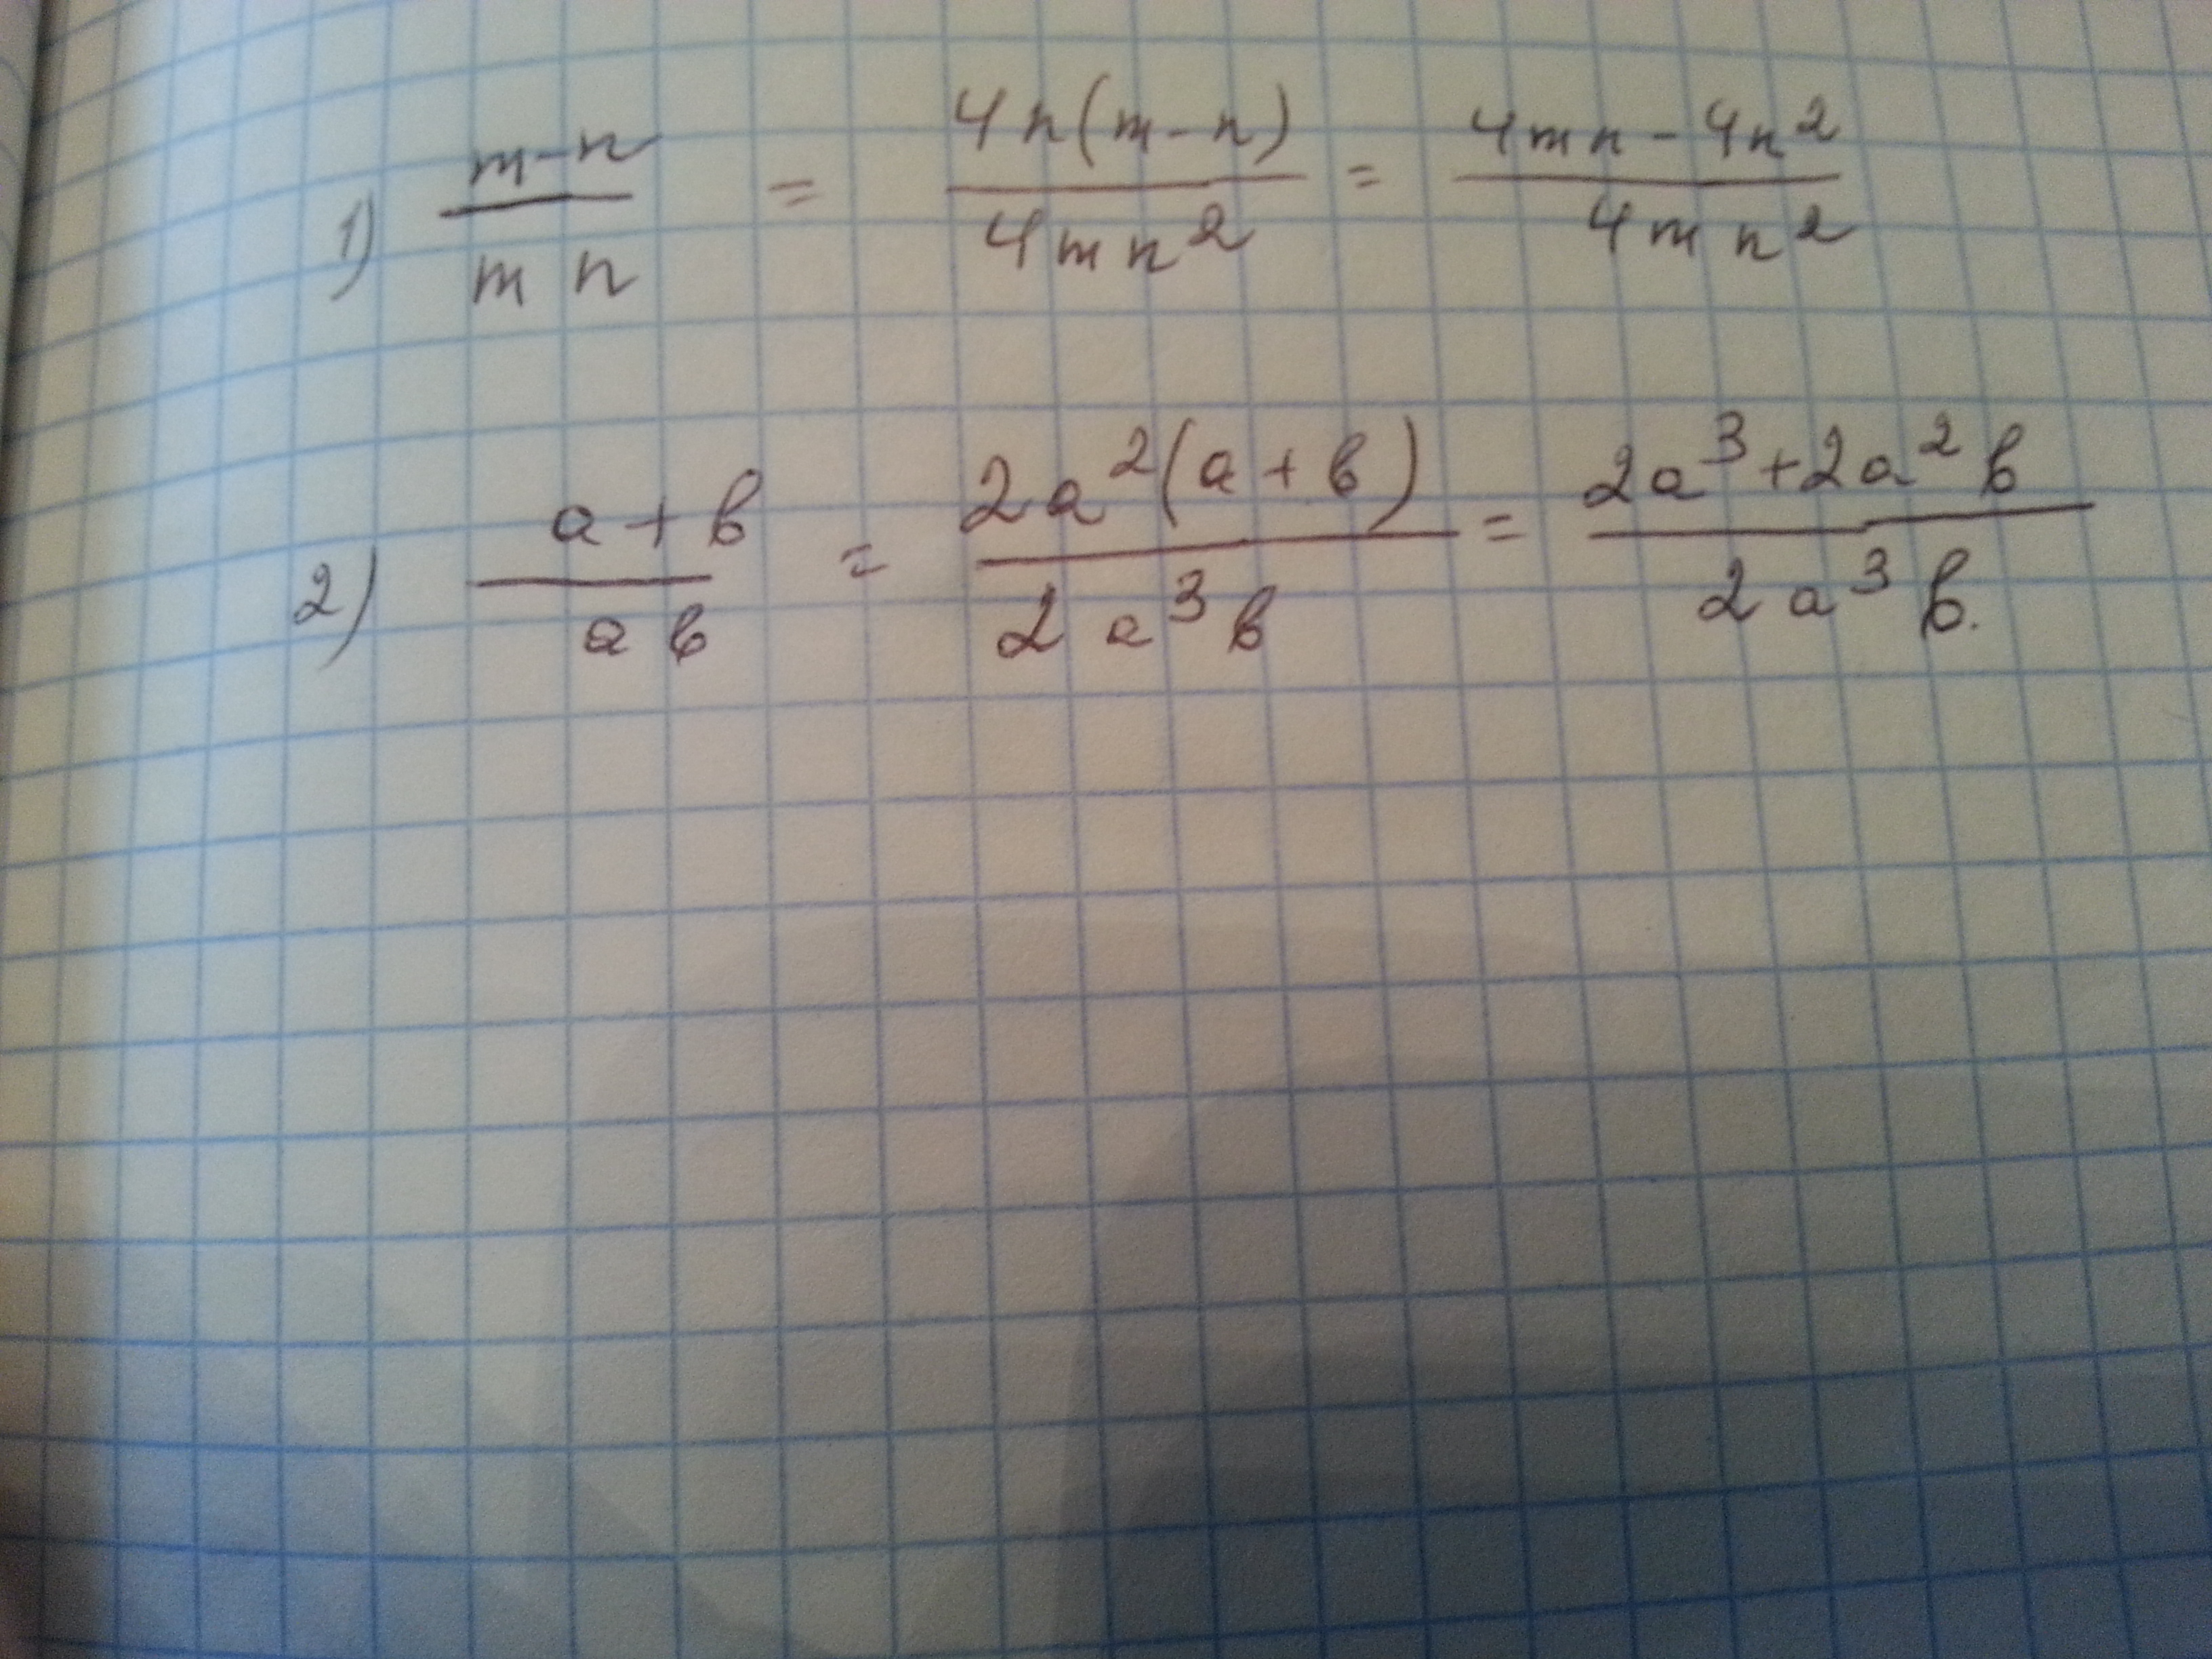 1) (m-n)/(m n) = (4n(m-n))/(4mn²) = (4mn-4n²)/(4mn²)
2) (a+b)/(ab) = (2a²(a+b))/(2a³b) = (2a³+2a²b)/(2a³b.)